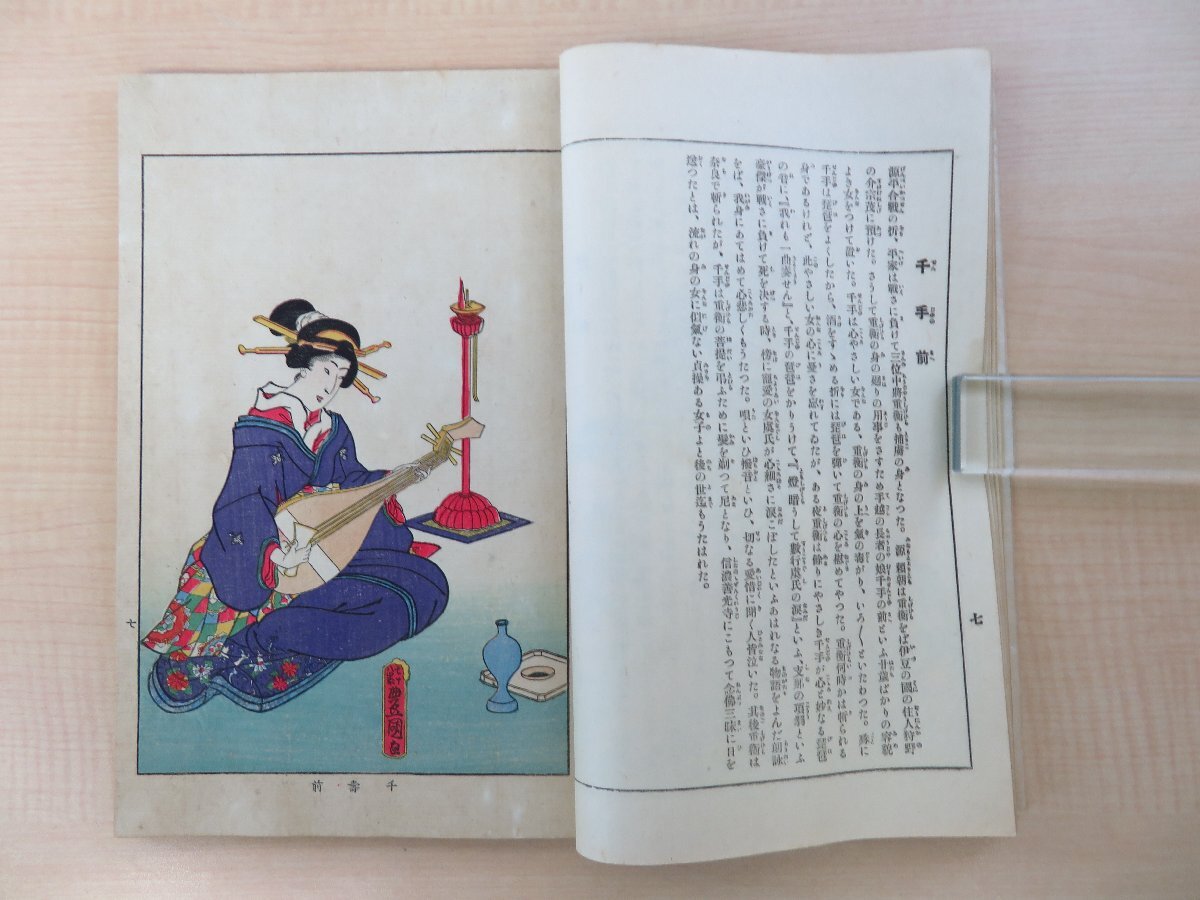 七
千手前
源平合戰の折、平家は戰さに負けて三位中將重衡も捕虜の身となつた。源賴朝は重衡をば伊豆の國の住人狩野
の介宗茂に預けた。さうして重衡の身の廻りの用事をさすため手越の長者の娘千手の前といふ廿歲ばかりの容貌
よき女をつけて置いた。千手は心やさしい女である、重衡の身の上を氣の毒がり、いろ〳〵といたわつた。殊に
千手は琵琶をよくしたから、酒をすゝめる折には琵琶を彈いて重衡の心を慰めてやつた。重衡何時かは斬られる
身であるけれど、此やさしい女の心に憂さを忘れてゐたが、ある夜重衡は餘りにやさしき千手が心と妙なる琵琶
の音に、『我れも一曲奏せん』と、千手の琵琶をかりうけて、『燈暗うして數行虞氏の淚』といふ、支那の項羽といふ
豪傑が戰さに負けて死を決する時、傍に寵愛の女虞氏が心細さに淚こぼしたといふあはれなる物語をよんだ朗詠
をば、我身にあてはめて心悲しくもうたつた。唄といひ撥音といひ、切なる愛惜に聞く人皆泣いた。其後重衡は
奈良で斬られたが、千手は重衡の菩提を弔ふために髮を剃つて尼となり、信濃善光寺にこもつて念佛三昧に日を
送つたとは、流れの身の女に似氣ない貞操ある女子よと後の世迄もうたはれた。
七
豊国画
千壽前